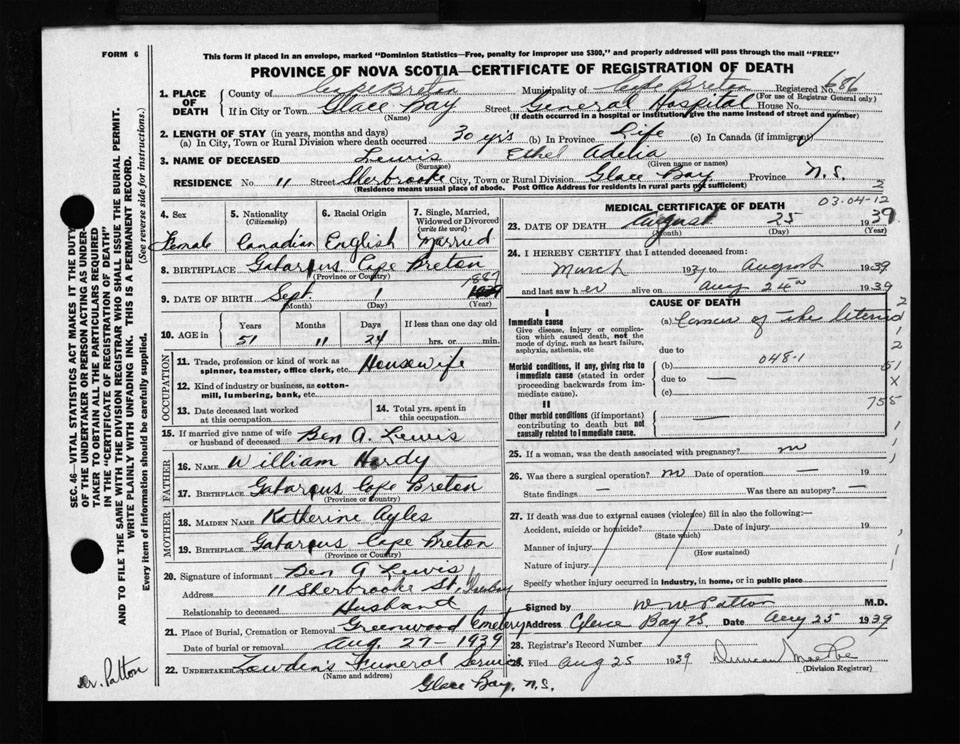 FORM 6
This form if placed in an envelope, marked "Dominion Statistics—Free, penalty for improper use $300," and properly addressed will pass through the mail "FREE"
PROVINCE OF NOVA SCOTIA—CERTIFICATE OF REGISTRATION OF DEATH
1. PLACE OF DEATH County of Cape Breton Municipality of Cape Breton Registered No. 686
(For use of Registrar General only)
If in City or Town Glace Bay Street General Hospital House No.
(Name) (If death occurred in a hospital or institution, give the name instead of street and number)
2. LENGTH OF STAY (in years, months and days)
(a) In City, Town or Rural Division where death occurred 30 yrs (b) In Province Life (c) In Canada (if immigrant)
3. NAME OF DECEASED Lewis Ethel Adelia
(Surname) (Given name or names)
RESIDENCE No. 11 Street Sherbrooke City, Town or Rural Division Glace Bay Province N.S.
(Residence means usual place of abode. Post Office Address for residents in rural parts not sufficient) 2
4. Sex 5. Nationality (Citizenship) 6. Racial Origin 7. Single, Married, Widowed or Divorced (write the word)
Female Canadian English Married
8. BIRTHPLACE Gabarous Cape Breton
(Province or Country)
9. DATE OF BIRTH Sept. 1 1887
(Month) (Day) (Year)
10. AGE in Years Months Days If less than one day old
51 11 24 hrs. or min.
OCCUPATION
11. Trade, profession or kind of work as spinner, teamster, office clerk, etc. Housewife
12. Kind of industry or business, as cotton-mill, lumbering, bank, etc.
13. Date deceased last worked at this occupation 14. Total yrs. spent in this occupation
15. If married give name of wife or husband of deceased Ben A. Lewis
FATHER
16. NAME William Hardy
17. BIRTHPLACE Gabarous Cape Breton
(Province or Country)
MOTHER
18. MAIDEN NAME Katherine Ayles
19. BIRTHPLACE Gabarous Cape Breton
(Province or Country)
20. Signature of informant Ben A Lewis
Address 11 Sherbrooke St,
Relationship to deceased Husband
21. Place of Burial, Cremation or Removal Greenwood Cemetery
Date of burial or removal Aug. 27-1939
22. Undertaker Lowden's Funeral Service
(Name and address)
Glace Bay, N.S.
MEDICAL CERTIFICATE OF DEATH
03-04-12
23. DATE OF DEATH August 25 1939
(Month) (Day) (Year)
24. I HEREBY CERTIFY that I attended deceased from:
March 1939 to August 1939
and last saw her alive on Aug 24th 1939
CAUSE OF DEATH
I
Immediate cause
Give disease, injury or complication which caused death, not the mode of dying, such as heart failure, asphyxia, asthenia, etc
(a) Cancer of the Uterus
due to
048.1
Morbid conditions, if any, giving rise to immediate cause (stated in order proceeding backwards from immediate cause).
(b)
due to —
(c)
II
Other morbid conditions (if important) contributing to death but not causally related to immediate cause. —
755
25. If a woman, was the death associated with pregnancy? no
26. Was there a surgical operation? no Date of operation — 19
State findings — Was there an autopsy? —
27. If death was due to external causes (violence) fill in also the following:—
Accident, suicide or homicide? Date of injury 19
(State which)
Manner of injury
(How sustained)
Nature of injury
Specify whether injury occurred in industry, in home, or in public place
Signed by W W Patton M.D.
Address Glace Bay Date Aug 25 1939
28. Registrar's Record Number
29. Filed Aug 25 1939 Duncan
(Division Registrar)
SEC. 46—VITAL STATISTICS ACT MAKES IT THE DUTY
OF THE UNDERTAKER OR PERSON ACTING AS UNDER-
TAKER TO OBTAIN ALL THE PARTICULARS REQUIRED
IN THE "CERTIFICATE OF REGISTRATION OF DEATH"
AND TO FILE THE SAME WITH THE DIVISION REGISTRAR WHO SHALL ISSUE THE BURIAL PERMIT.
WRITE PLAINLY WITH UNFADING INK. THIS IS A PERMANENT RECORD.
Every item of information should be carefully supplied. (See reverse side for instructions.)
Dr. Patton